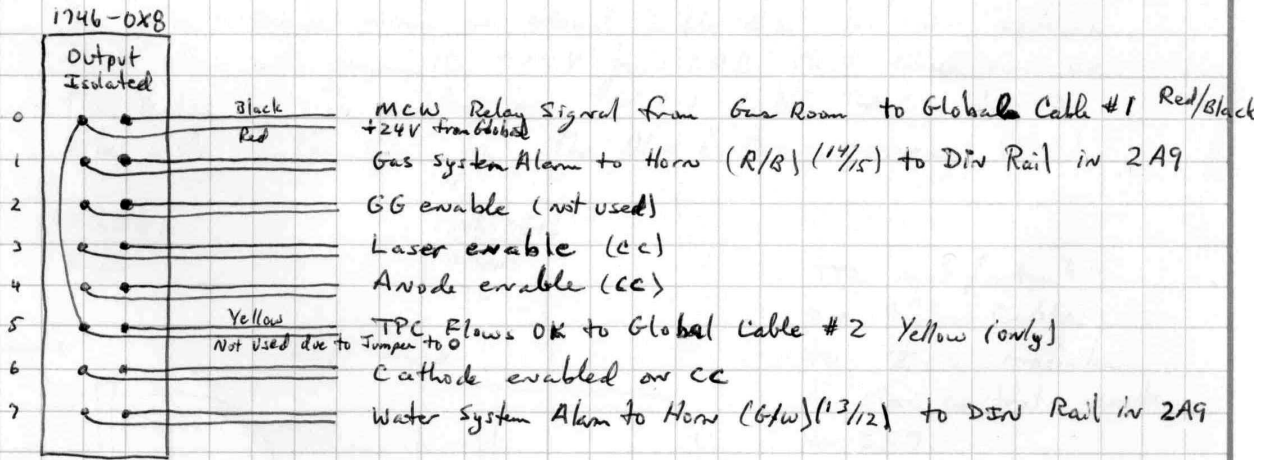 1746-OX8
Output
Isolated
0 Black MCW Relay Signal from Gas Room to Global Cable #1 Red/Black
Red +24V from Global
1 Gas System Alarm to Horn (R/B) (14/15) to Din Rail in 2A9
2 GG enable (not used)
3 Laser enable (CC)
4 Anode enable (CC)
5 Yellow TPC Flows OK to Global Cable #2 Yellow (only)
Not used due to Jumper to 0
6 Cathode enabled on CC
7 Water System Alarm to Horn (G/W) (13/12) to DIN Rail in 2A9